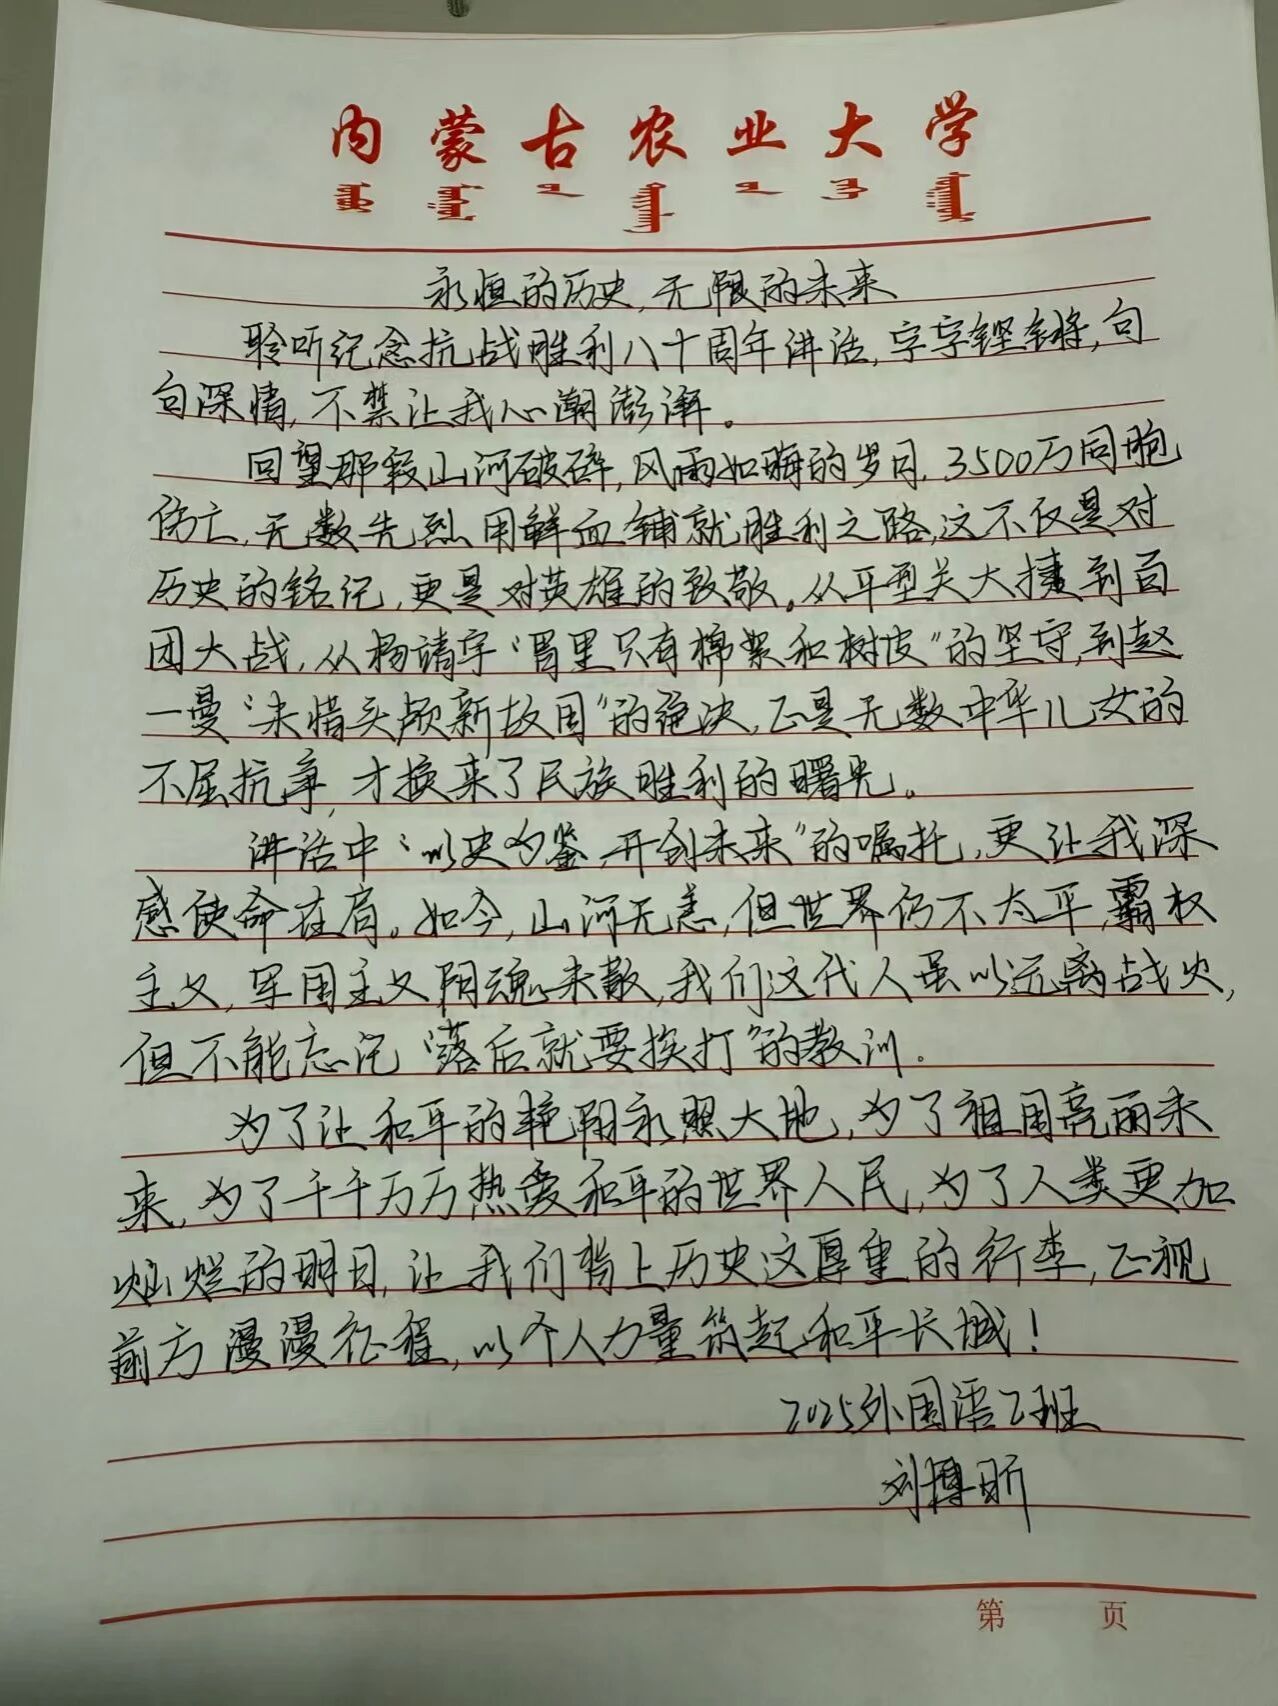 内蒙古农业大学
永恒的历史,无限的未来
聆听纪念抗战胜利八十周年讲话,字字铿锵,句
句深情,不禁让我心潮澎湃。
回望那段山河破碎,风雨如晦的岁月,3500万同胞
伤亡,无数先烈用鲜血铺就胜利之路,这不仅是对
历史的铭记,更是对英雄的致敬。从平型关大捷到百
团大战,从杨靖宇“胃里只有棉絮和树皮”的坚守,到赵
一曼“未惜头颅新故国”的绝决,正是无数中华儿女的
不屈抗争,才换来了民族胜利的曙光。
讲话中“以史为鉴,开创未来”的嘱托,更让我深
感使命在肩。如今,山河无恙,但世界仍不太平,霸权
主义,军国主义阴魂未散,我们这代人虽以远离战火,
但不能忘记“落后就要挨打”的教训.
为了让和平的艳阳永照大地,为了祖国亮丽未
来,为了千千万万热爱和平的世界人民,为了人类更加
灿烂的明日,让我们背上历史这厚重的行李,正视
前方漫漫征程,以个人力量筑起和平长城!
2025外国语2班
刘博昕
第 页